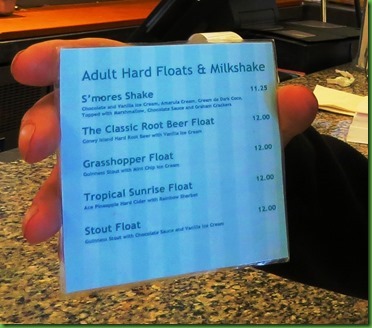 Adult Hard Floats & Milkshake
S'mores Shake 11.25
Chocolate and Vanilla Ice Cream, Amarula Cream, Cream de Dark Coco,
Topped with Marshmallow, Chocolate Sauce and Graham Crackers
The Classic Root Beer Float 12.00
Coney Island Hard Root Beer with Vanilla Ice Cream
Grasshopper Float 12.00
Guinness Stout with Mint Chip Ice Cream
Tropical Sunrise Float 12.00
Ace Pineapple Hard Cider with Rainbow Sherbet
Stout Float 12.00
Guinness Stout with Chocolate Sauce and Vanilla Ice Cream